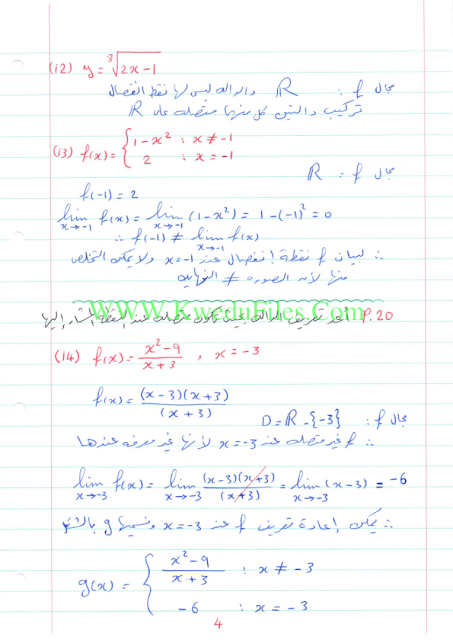 (12) y = ∛(2x-1)
مجال f : R والدالة ليس لها نقط انفصال
تركيب دالتين كل منهما متصلة على R
(13) f(x) = { 1-x² : x ≠ -1
2 : x = -1
مجال f : R
f(-1) = 2
lim x→-1 f(x) = lim x→-1 (1-x²) = 1-(-1)² = 0
∴ f(-1) ≠ lim x→-1 f(x)
∴ لبيان f نقطة انفصال عند x=-1 ولا يمكن التخلص
منها لأن الصورة ≠ النهاية
P.20 أعد تعريف الدالة بحيث تكون متصلة عند النقطة المشار إليها
WWW.KweduFiles.Com
(14) f(x) = (x²-9)/(x+3) , x = -3
f(x) = (x-3)(x+3)/(x+3)
مجال f : D = R - {-3}
∴ f غير متصلة عند x=-3 لأنها غير معرفة عندها
lim x→-3 f(x) = lim x→-3 (x-3)(x+3)/(x+3) = lim x→-3 (x-3) = -6
∴ يمكن إعادة تعريف f عند x=-3 ونسميها g
g(x) = { (x²-9)/(x+3) : x ≠ -3
-6 : x = -3
4